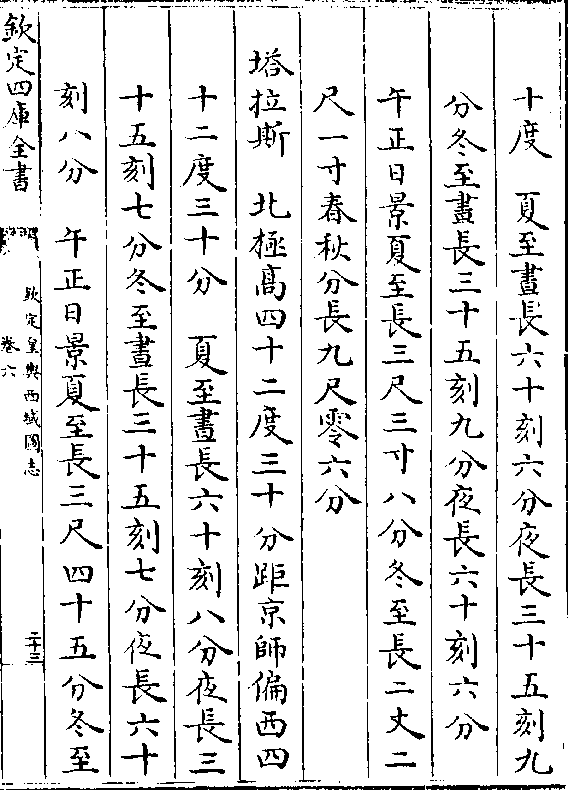 十度　夏至晝長六十刻六分夜長三十五刻九
分冬至晝長三十五刻九分夜長六十刻六分
午正日景夏至長三尺三寸八分冬至長二丈二
尺一寸春秋分長九尺零六分
塔拉斯　北極高四十二度三十分距京師偏西四
十二度三十分　夏至晝長六十刻八分夜長三
十五刻七分冬至晝長三十五刻七分夜長六十
刻八分　午正日景夏至長三尺四十五分冬至
欽定四庫全書
欽定皇輿西域圖志
卷六
二十三